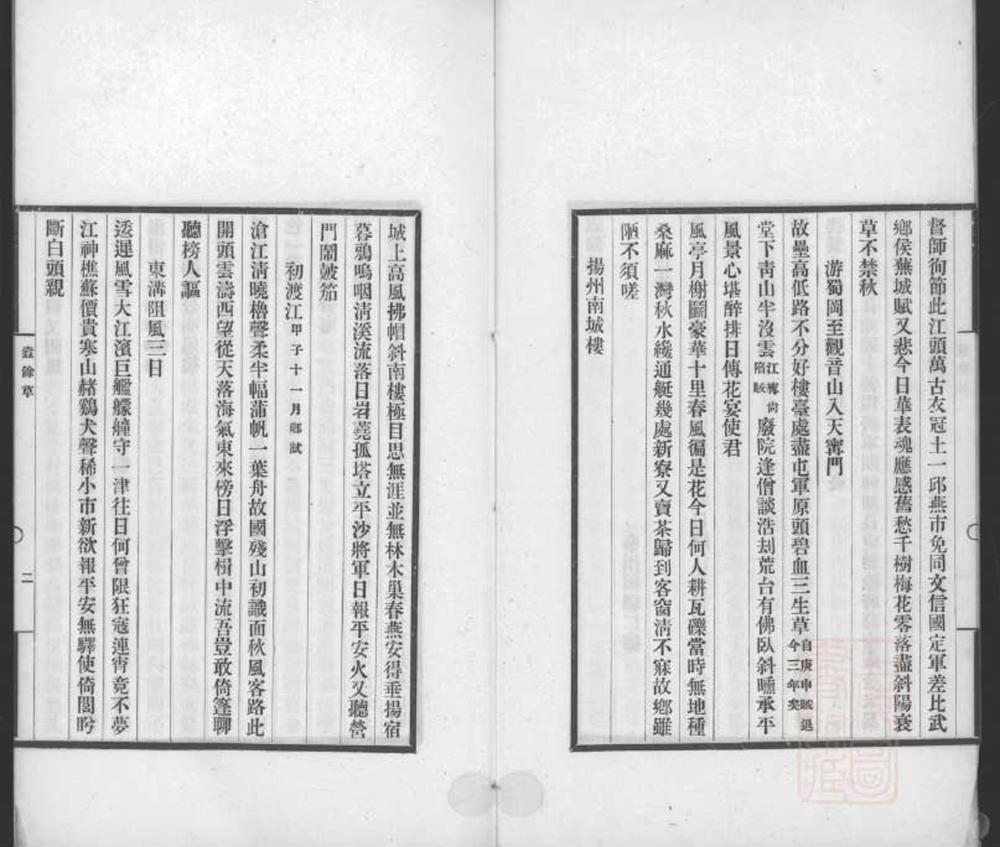 督師徇節此江頭萬古衣冠土一邱燕市免同文信國定軍差比武
鄉侯蕪城賦又悲今日華表魂應感舊愁千樹梅花零落盡斜陽衰
草不禁秋
游蜀岡至觀音山入天寗門
故壘高低路不分好樓臺處盡屯軍原頭碧血三生草自庚申賊退今三年矣
堂下青山半沒雲江寗尙陷賊廢院逢僧談浩刦荒台有佛臥斜曛承平
風景心堪醉排日傳花宴使君
風亭月榭鬭豪華十里春風徧是花今日何人耕瓦礫當時無地種
桑麻一灣秋水纔通艇幾處新寮又賣茶歸到客窗淸不寐故鄉雖
陋不須嗟
揚州南城樓
城上高風拂帽斜南樓極目思無涯並無林木巢春燕安得垂揚宿
暮鴉嗚咽淸溪流落日岧蕘孤塔立平沙將軍日報平安火又聽營
門鬧皷笳
初渡江甲子十一月鄉試
滄江淸曉櫓聲柔半幅蒲帆一葉舟故國殘山初識面秋風客路此
開頭雲濤西望從天落海氣東來傍日浮擊楫中流吾豈敢倚篷聊
聽榜人謳
東溝阻風三日
逶遲風雪大江濱巨艦艨艟守一津往日何曾限狂寇連宵竟不夢
江神樵蘇價貴寒山赭鷄犬聲稀小市新欲報平安無驛使倚閭盻
斷白頭親
蠧餘草
二